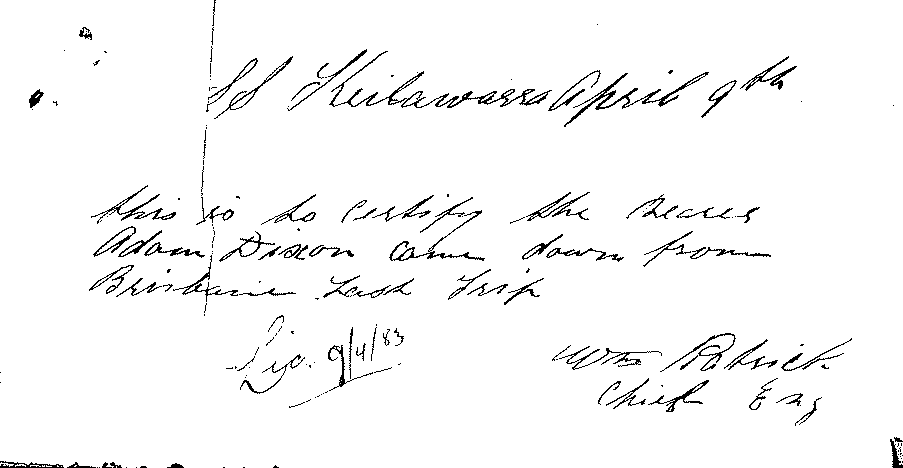 SS Keilawarra April 9th
this is to Certify the Bearer
Adam Dixon came down from
Brisbane Last Trip
9/4/83
Wm Patrick
Chief Eng